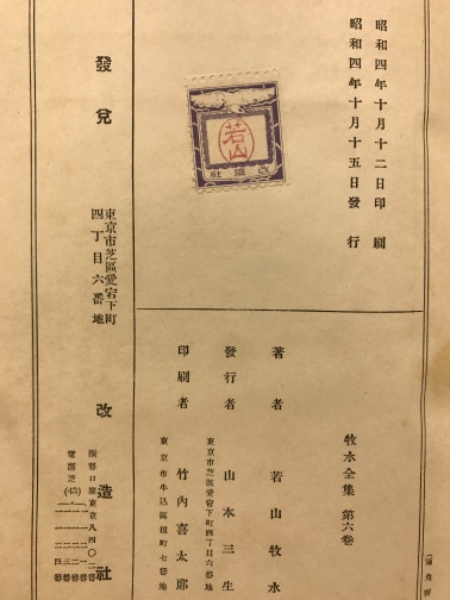 昭和四年十月十二日印刷
昭和四年十月十五日發行
若山
改造社
牧水全集 第六卷
著者 若山牧水
發行者 山本三生
東京市芝區愛宕下町四丁目六番地
印刷者 竹內喜太郎
東京市牛込區榎町七番地
發兌
東京市芝區愛宕下町
四丁目六番地
改造社
振替口座東京八四〇二番
電話芝(43)